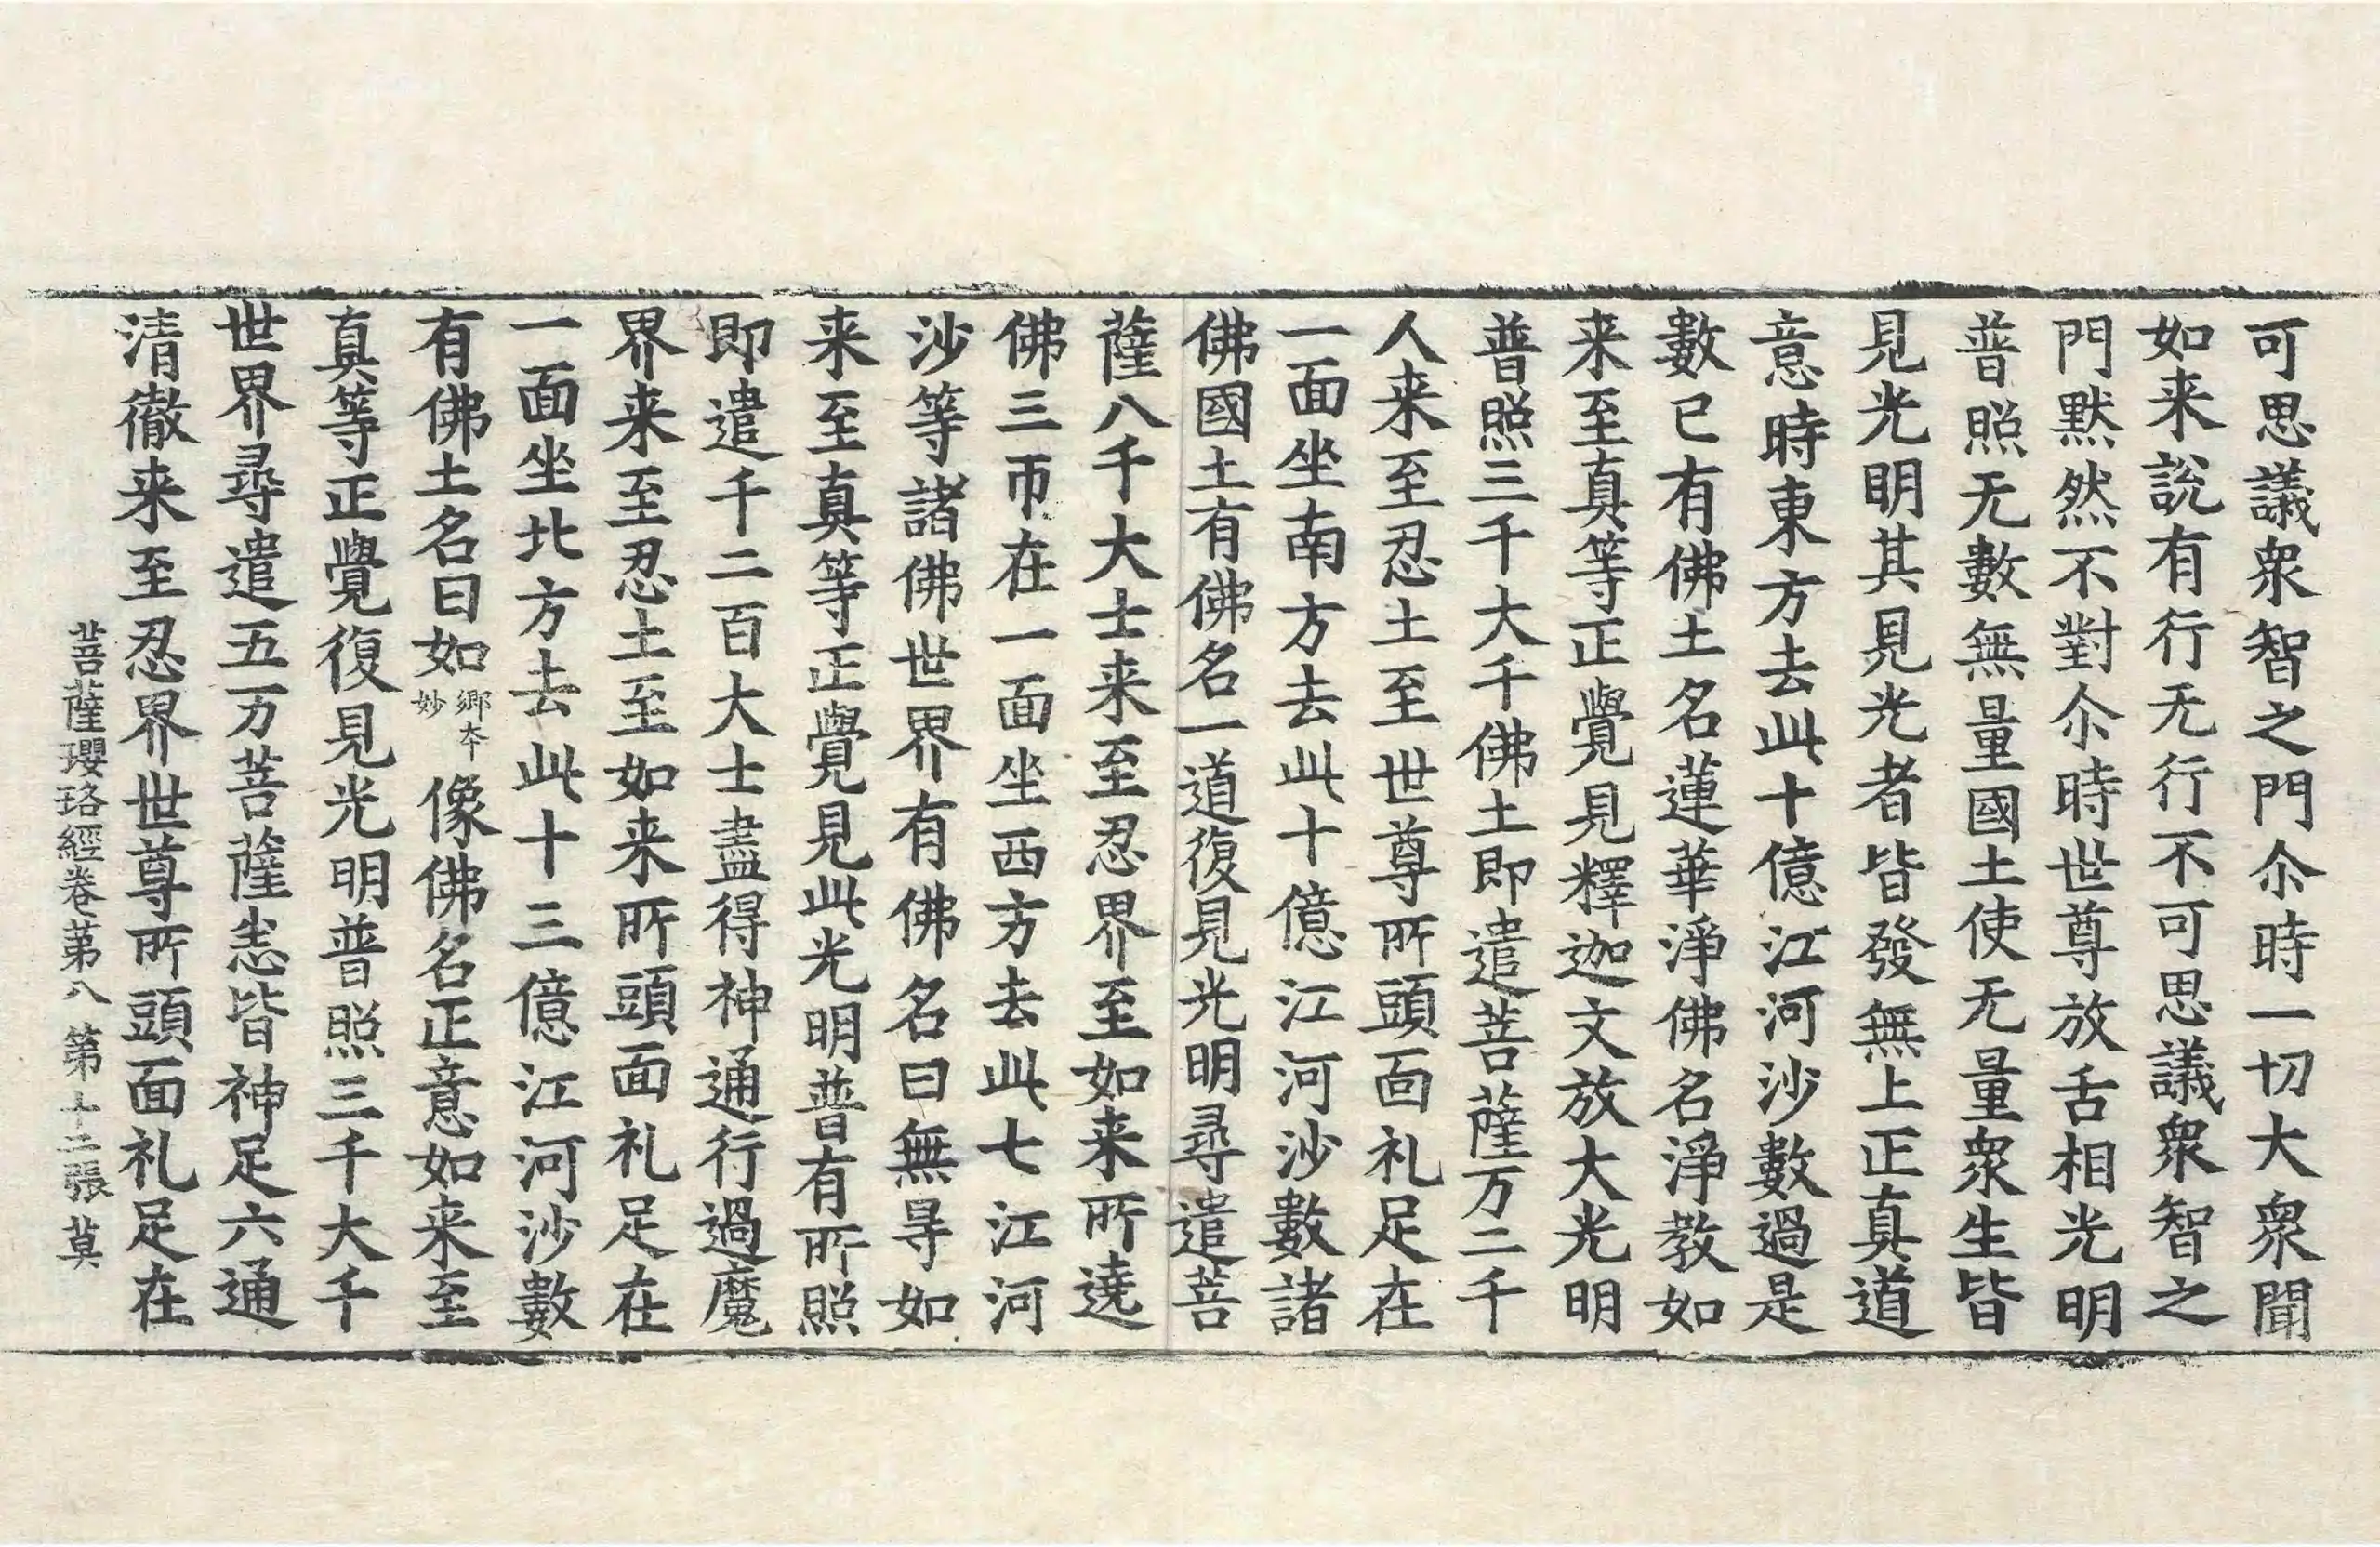 可思議衆智之門尒時一切大衆聞
如来說有行无行不可思議衆智之
門默然不對尒時世尊放舌相光明
普照无數無量國土使无量衆生皆
見光明其見光者皆發無上正真道
意時東方去此十億江河沙數過是
數已有佛土名蓮華淨佛名淨教如
来至真等正覺見釋迦文放大光明
普照三千大千佛土即遣菩薩万二千
人来至忍土至世尊所頭面礼足在
一面坐南方去此十億江河沙數諸
佛國土有佛名一道復見光明尋遣菩
薩八千大士来至忍界至如来所遶
佛三帀在一面坐西方去此七江河
沙等諸佛世界有佛名曰無㝵如
来至真等正覺見此光明普有所照
即遣千二百大士盡得神通行過魔
界来至忍土至如来所頭面礼足在
一面坐北方去此十三億江河沙數
有佛土名曰如鄉本妙像佛名正意如来至
真等正覺復見光明普照三千大千
世界尋遣五万菩薩悉皆神足六通
清徹来至忍界世尊所頭面礼足在
菩薩瓔珞經卷第八 第十二張 莫